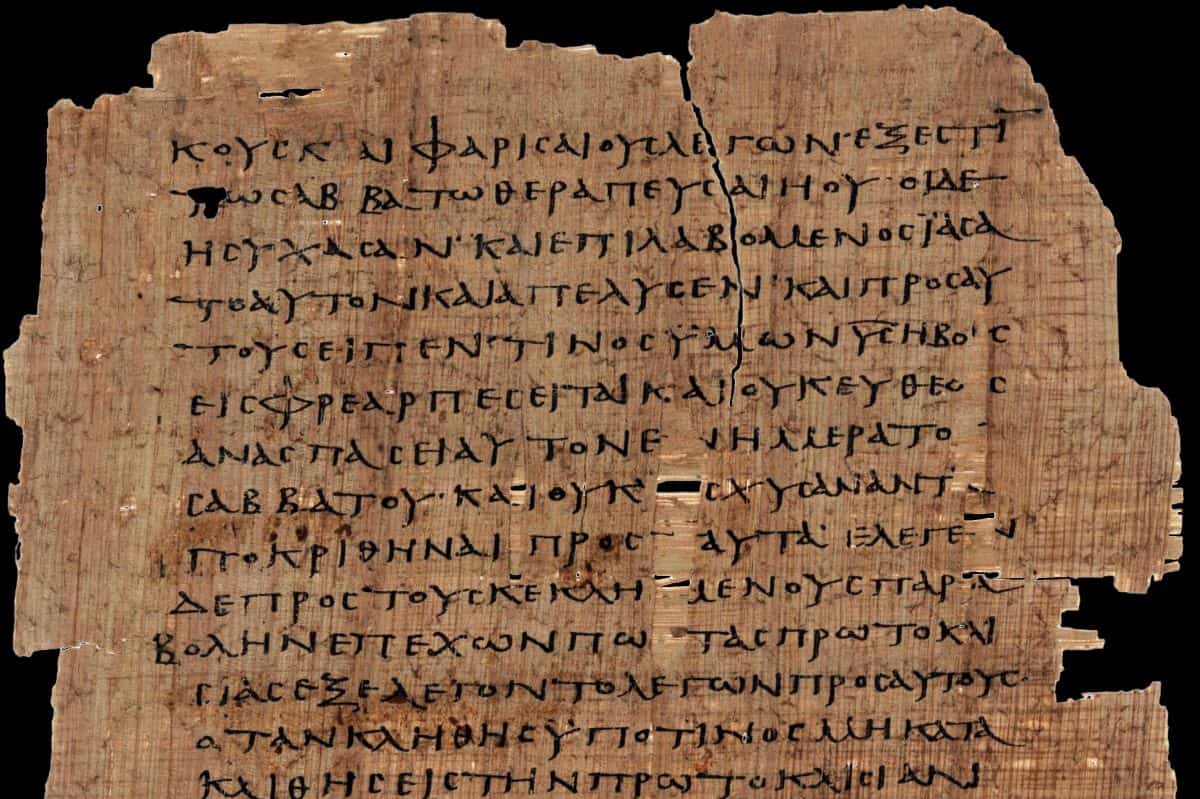 ΚΟΥϹΚΑΙΦΑΡΙϹΑΙΟΥϹΛΕΓΩΝ·ΕΞΕϹΤΙ
ΤΩϹΑΒΒΑΤΩΘΕΡΑΠΕΥϹΑΙΗΟΥ·ΟΙΔΕ
ΗϹΥΧΑϹΑΝ·ΚΑΙΕΠΙΛΑΒΟΜΕΝΟϹΪΑϹΑ
ΤΟΑΥΤΟΝΚΑΙΑΠΕΛΥϹΕΝ·ΚΑΙΠΡΟϹΑΥ
ΤΟΥϹΕΙΠΕΝ·ΤΙΝΟϹΫΜΩΝΥϹΗΒΟϹ
ΕΙϹΦΡΕΑΡΠΕϹΕΙΤΑΙΚΑΙΟΥΚΕΥΘΕΟϹ
ΑΝΑϹΠΑϹΕΙΑΥΤΟΝΕΝΗΜΕΡΑΤΟ
ϹΑΒΒΑΤΟΥ·ΚΑΙΟΥΚΙϹΧΥϹΑΝΑΝΤ
ΠΟΚΡΙΘΗΝΑΙΠΡΟϹΤΑΥΤΑ·ΕΛΕΓΕΝ
ΔΕΠΡΟϹΤΟΥϹΚΕΚΛΗΜΕΝΟΥϹΠΑΡΑ
ΒΟΛΗΝΕΠΕΧΩΝΠΩϹΤΑϹΠΡΩΤΟΚΛΙ
ϹΙΑϹΕΞΕΛΕΓΟΝΤΟΛΕΓΩΝΠΡΟϹΑΥΤΟΥϹ·
ΟΤΑΝΚΛΗΘΗϹΫΠΟΤΙΝΟϹΜΗΚΑΤΑ
ΚΛΙΘΗϹΕΙϹΤΗΝΠΡΩΤΟΚΛΙϹΙΑΝ